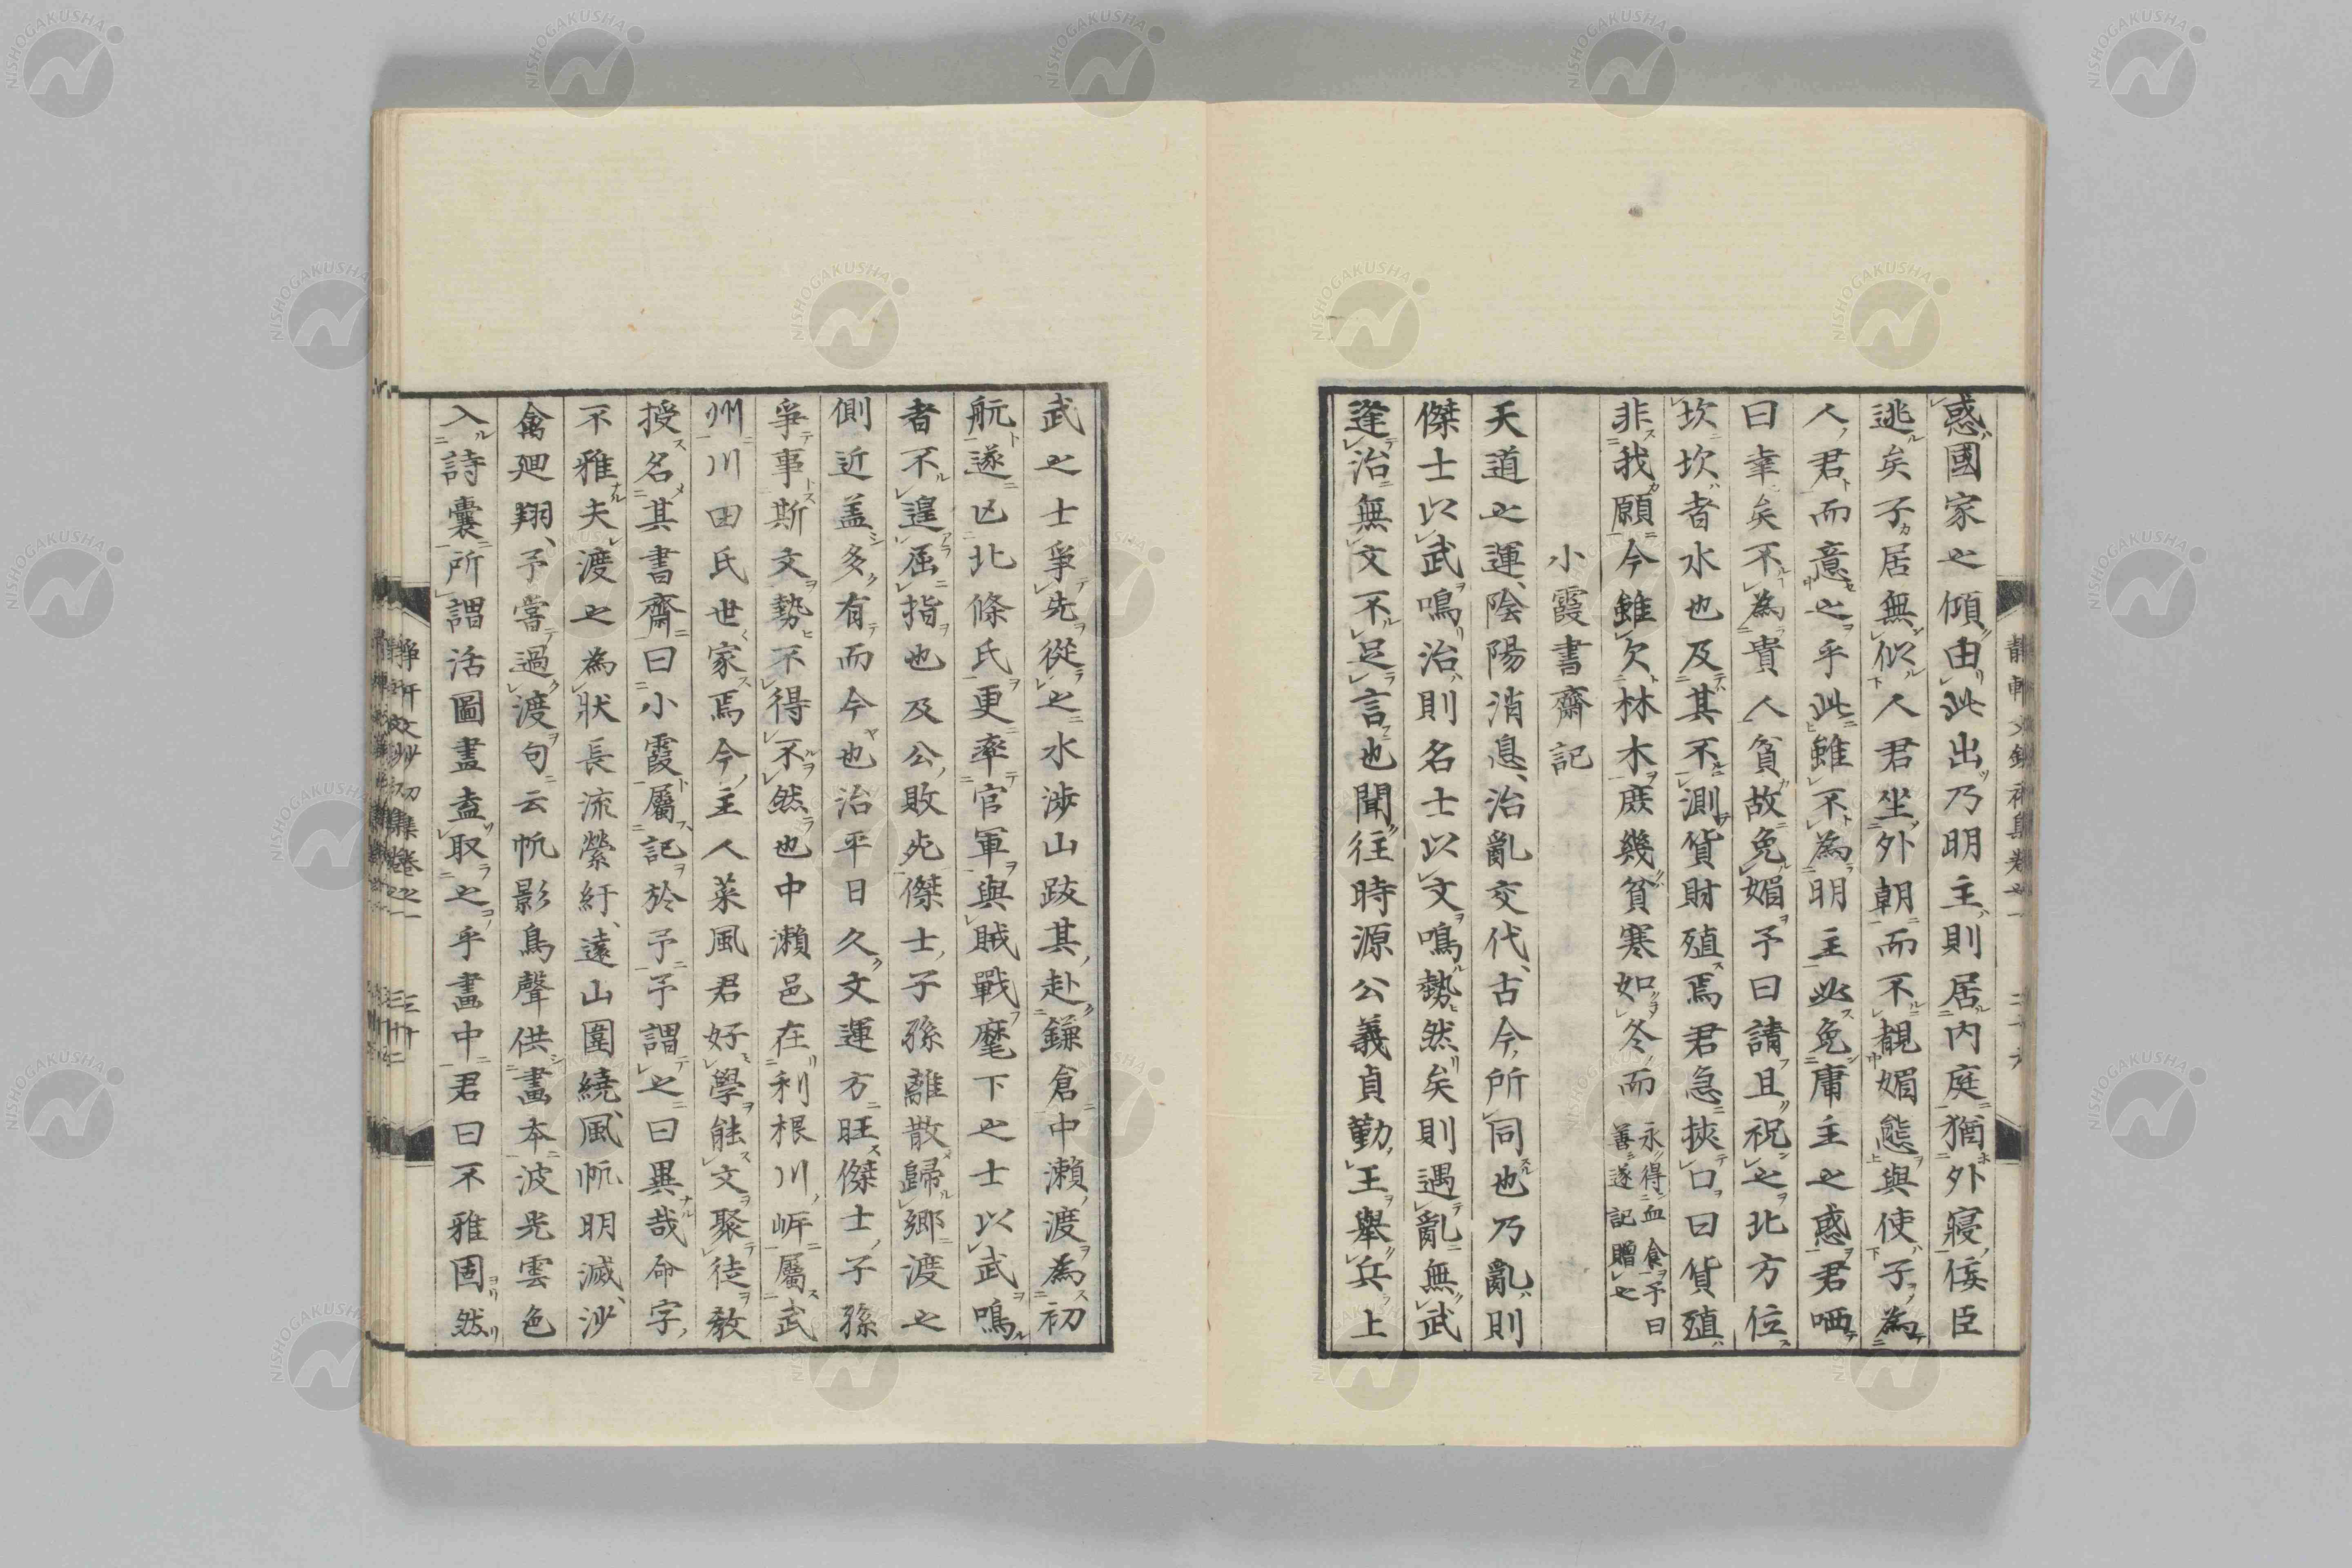 惑國家之傾由此出乃明主則居内庭猶外寢佞臣
逃矣子居無似人君坐外朝而不覩媚態與使子為
人君而意之乎此雖不為明主此免庸主之惑君哂
曰幸矣不為貴人貧故免媚予曰請且祝之北方位
坎坎者水也及其不測貨財殖焉君急挾口曰貨殖
非我願今雖欠林木庶幾貧寒如冬而永得血食予曰善遂記贈之
小霞書齋記
天道之運陰陽消息治亂交代古今所同也乃亂則
傑士以武鳴治則名士以文鳴勢然矣則遇亂無武
逢治無文不足言也聞往時源公義貞勤王舉兵上
武之士爭先從之水渉山跋其赴鎌倉中瀬渡為初
航遂亡北條氏更率官軍與賊戰麾下之士以武鳴
者不遑屈指也及公敗死傑士子孫離散歸鄉渡之
側近盖多有而今也治平日久文運方旺傑士子孫
爭事斯文勢不得不然也中瀬邑在利根川岼屬武
州川田氏世家焉今主人菜風君好學能文聚徒敎
授名其書齋曰小霞屬記於予予謂之曰異哉命字
不雅夫渡之為狀長流縈紆遠山圍繞風帆明滅沙
禽廻翔予嘗過渡句云帆影鳥聲供畫本波光雲色
入詩囊所謂活圖畫盍取之乎畫中君曰不雅固然